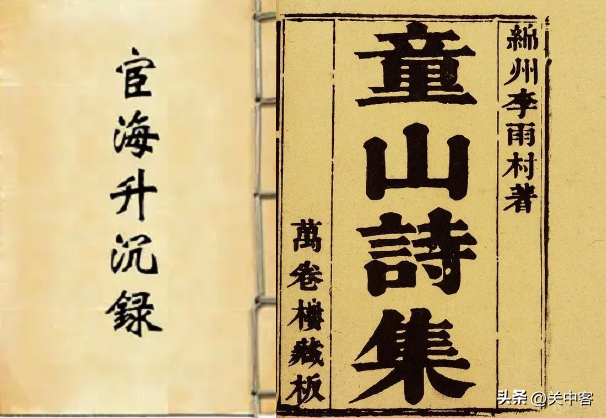 宦海升沉録
綿州李雨村著
童山詩集
萬卷樓藏板
头条 @关中客